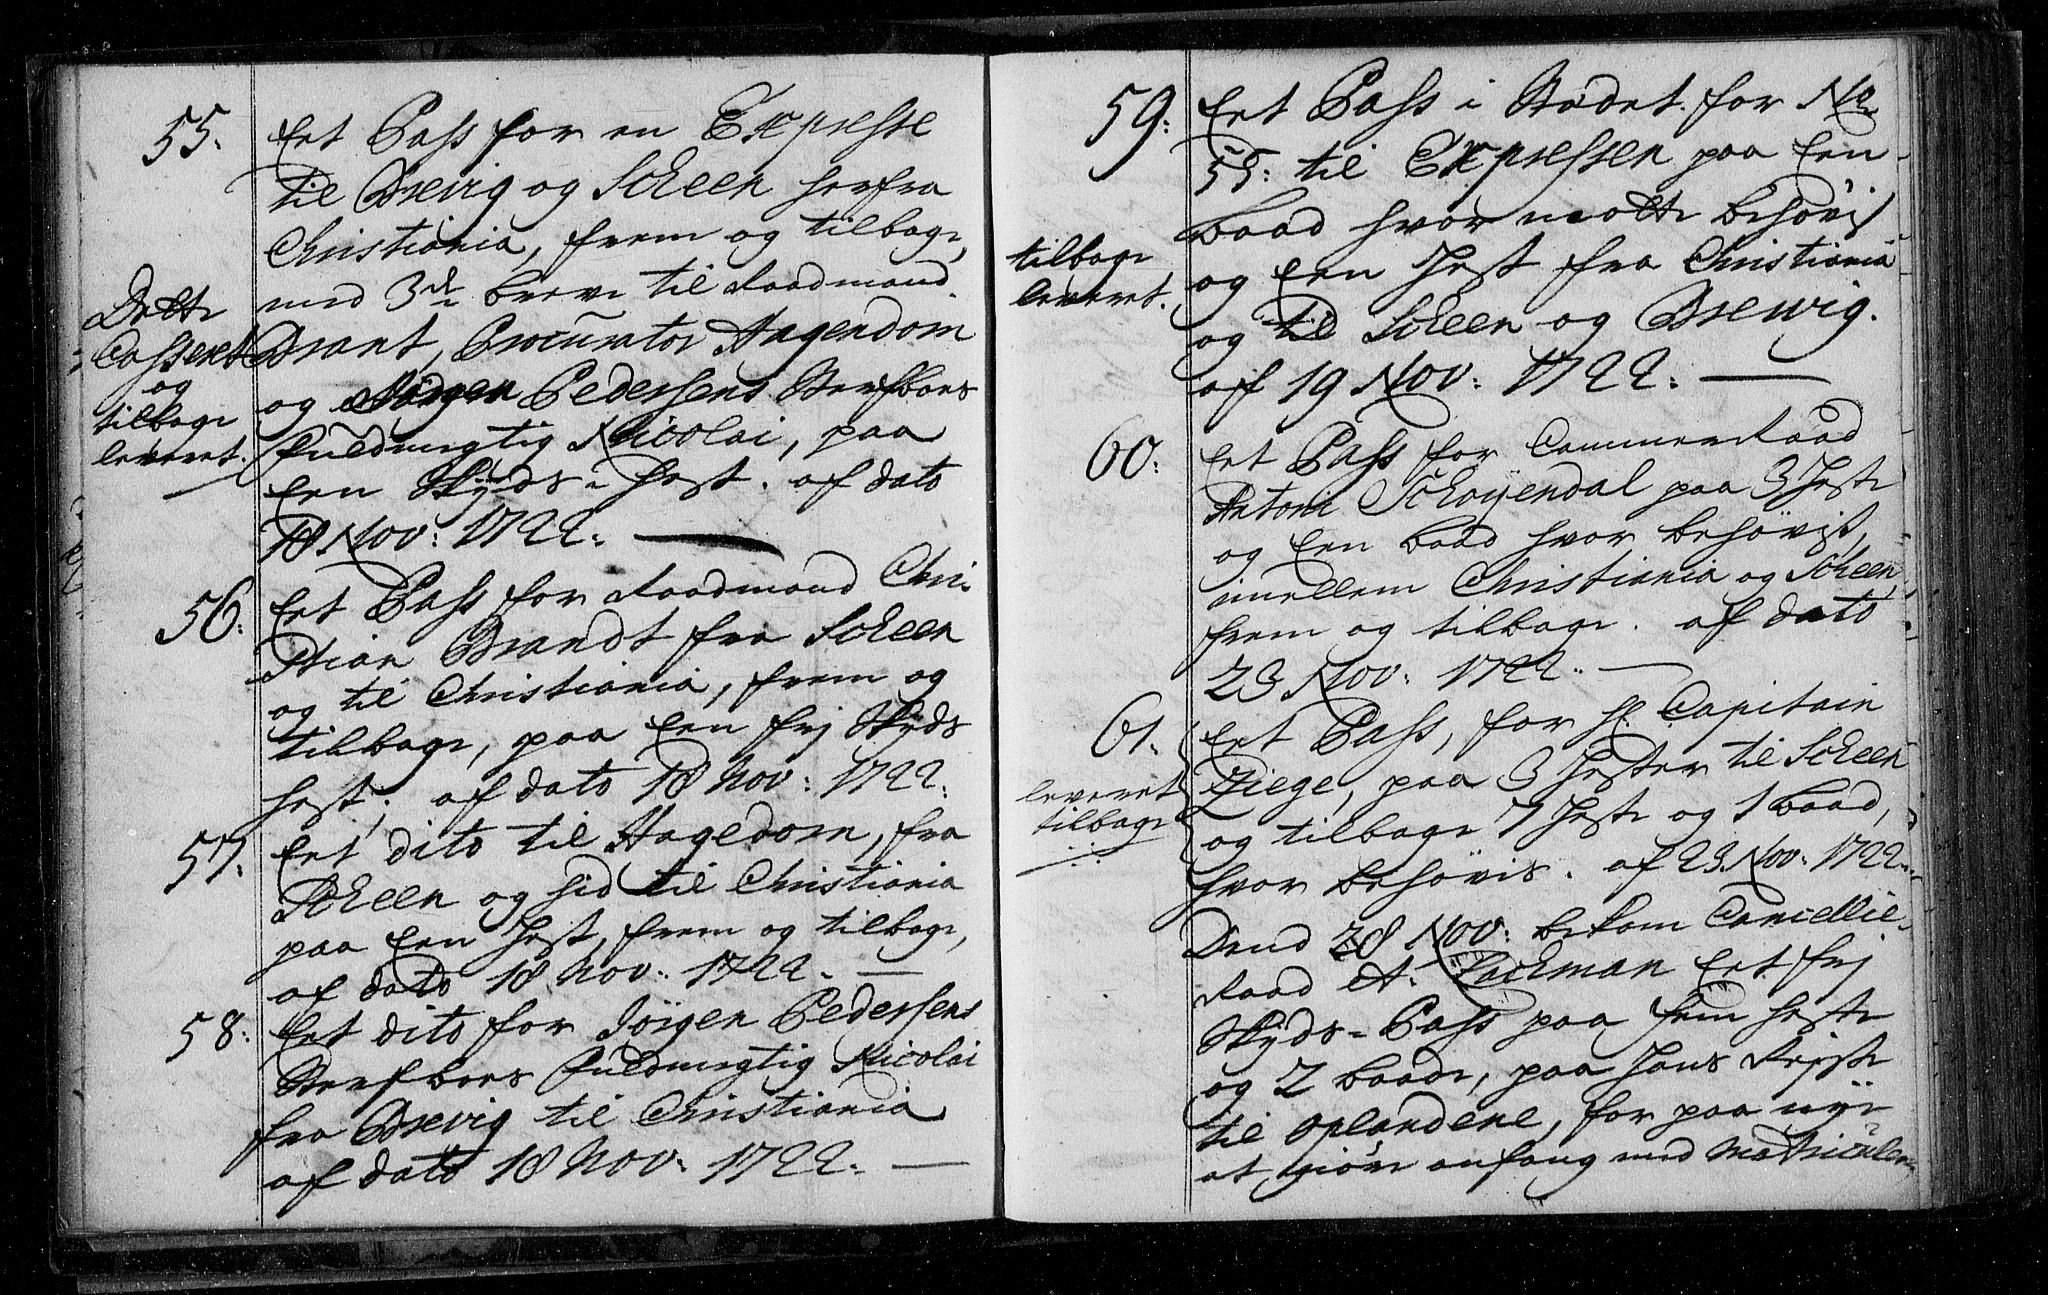 55. Eet Pass for en Expresse
til Brevig og Scheen herfra
Christiania, frem og tilbage,
med 3de breve til Raadmand
Brant, Procurator Hagendorn
og Jörgen Pedersens Sterfboes
Fuldmegtig Nicolai, paa
Een Skyds-Hest. af dato
18 Nov: 1722.
Dette
Casseret
og
tilbage
leveret.
56. Eet Pass for Raadmand Chri-
stian Brandt fra Scheen
og til Christiania, frem og
tilbage, paa Een frj Skyds
hest; af dato 18 Nov: 1722.
57. Eet dito til Hagedorn, fra
Scheen og hid til Christiania
paa Een Hest, frem og tilbage,
af dato 18 Nov: 1722.
58. Eet dito for Jörgen Pedersens
Sterfboes Fuldmegtig Nicolai
fra Brevig til Christiania
af dato 18 Nov: 1722.
59. Eet Pass i Stædet for No
55: til Expressen paa Een
baad hvor motte behövis
og Een Hest fra Christiania
og til Scheen og Brewig.
af 19 Nov: 1722.
tilbage
leveret.
60. Eet Pass for Cammer Raad
Antoni Schøyendal paa 3 Heste
og Een baad hvor behövist,
imellem Christiania og Scheen,
frem og tilbage. af dato
23 Nov: 1722.
61. Eet Pass, for Hr Capitain
Ziege, paa 3 Hester til Scheen
og tilbage 7 Heste og 1 baad,
hvor behövis. af 23 Nov: 1722.
leveret
tilbage
Dend 28 Nov: bekom Cancellie-
Raad A: Tuckman Eet frj
Skyds-Pass paa fem heste
og 2 baade, paa Hans Rejse
til Oplandene, for paa nye
at giøre anfang med Matriculen